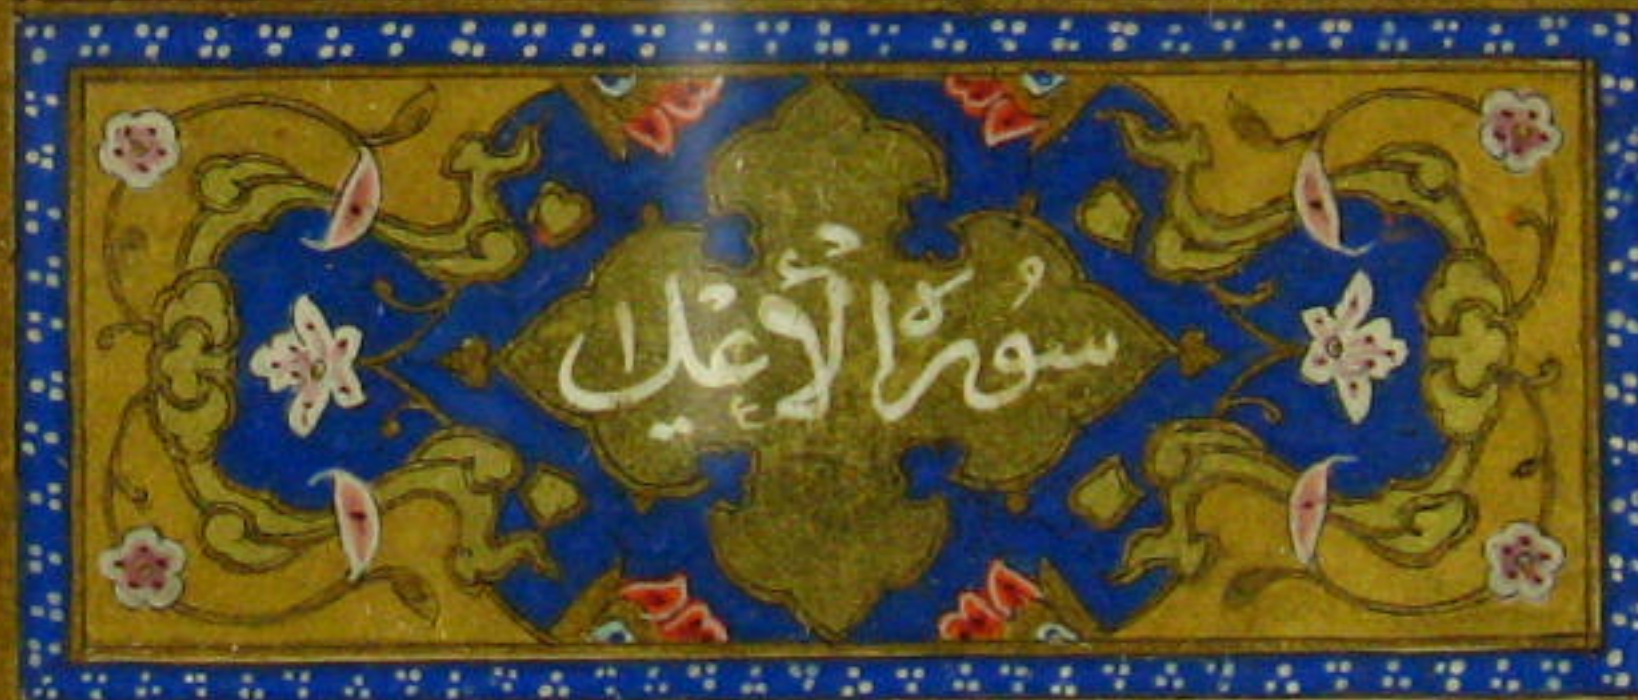 سُورَة الْأَعْلٰي